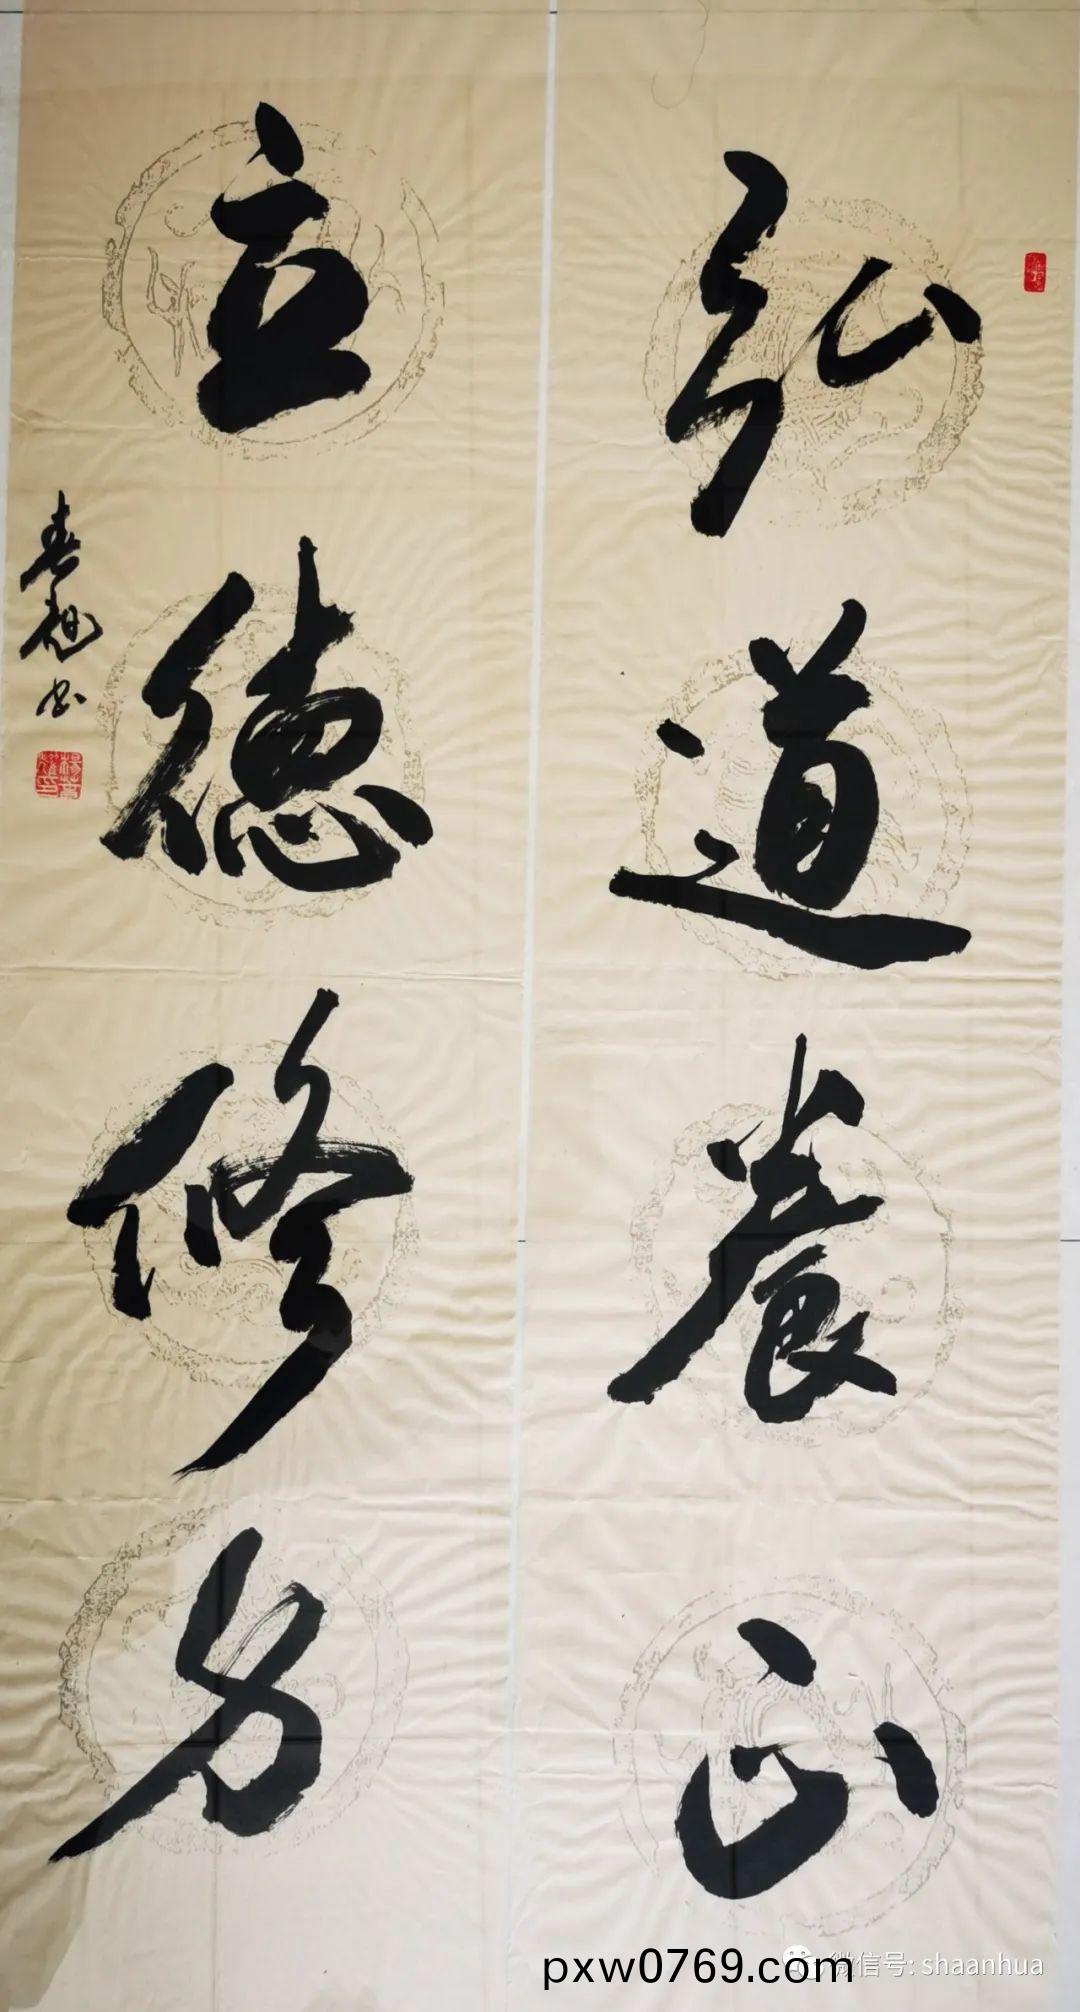 弘道養正
立德修身
春 书
微信号: shaanhua
pxw0769.com